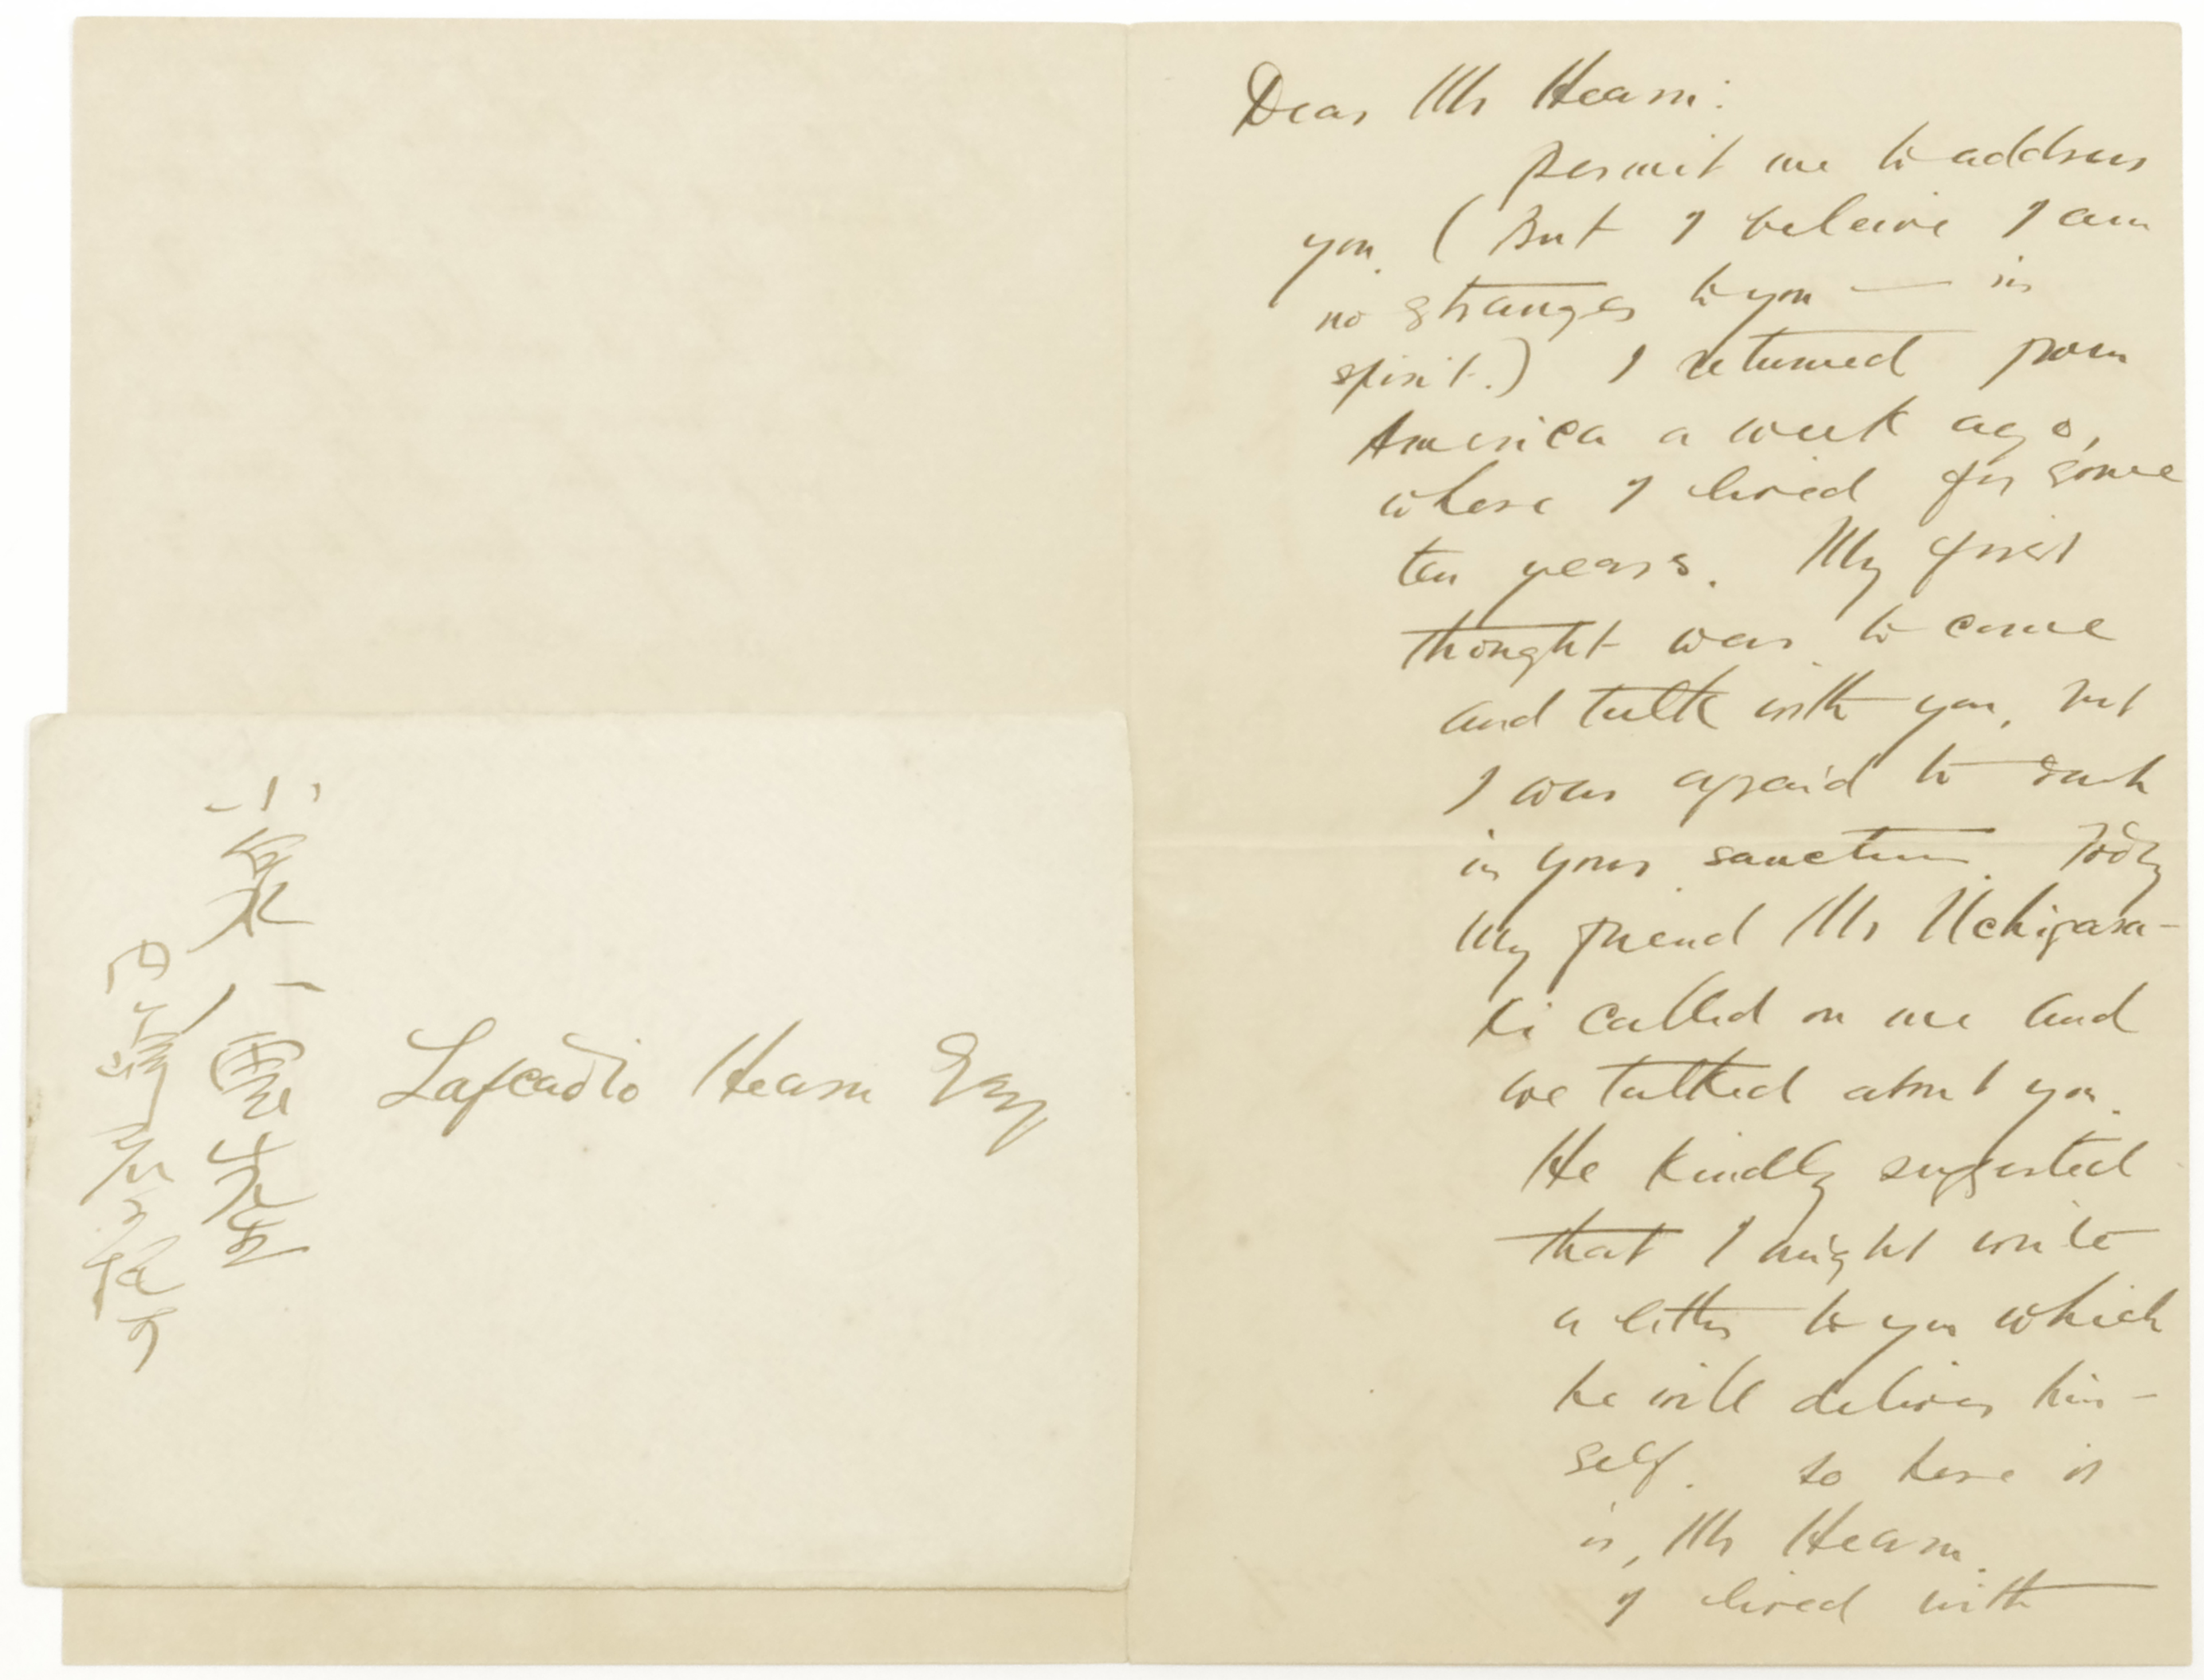 Dear Mr Hearn:
Permit me to address
you. ( But I beleive I am
no stranger to you — in
spirit.) I returned from
America a week ago,
where I lived for some
ten years. My first
thought was to come
and talk with you, but
I was afraid to
in your sanctum. Today
my friend Mr Uchigasa-
ki called on me and
we talked about you.
He kindly suggested
that I might write
a letter to you which
he will deliver him-
self. So here it
is, Mr Hearn.
I lived with
小泉八雲先生
Lafcadio Hearn Esq